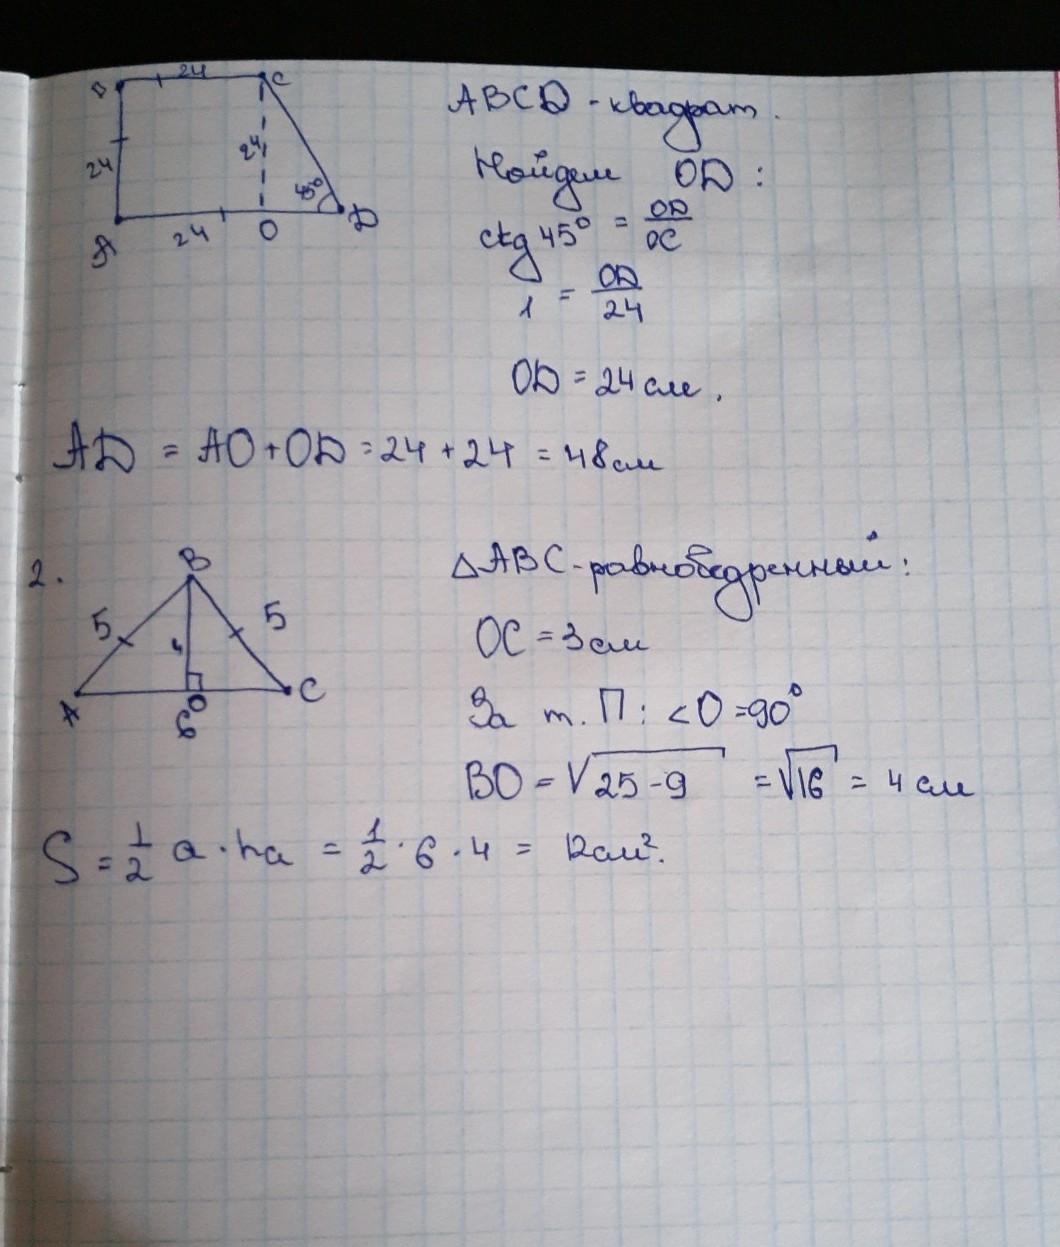 24 C
24
24
45°
24 O D
A
ABCD - квадрат.
Найдем OD :
ctg 45° = OD/OC
1 = OD/24
OD = 24 см.
AD = AO + OD = 24 + 24 = 48 см
2.
B
5 5
4
A O C
6
△ABC - равнобедренный:
OC = 3 см
За т. П: <O = 90°
BO = √25-9 = √16 = 4 см
S = 1/2 a · ha = 1/2 · 6 · 4 = 12 см².